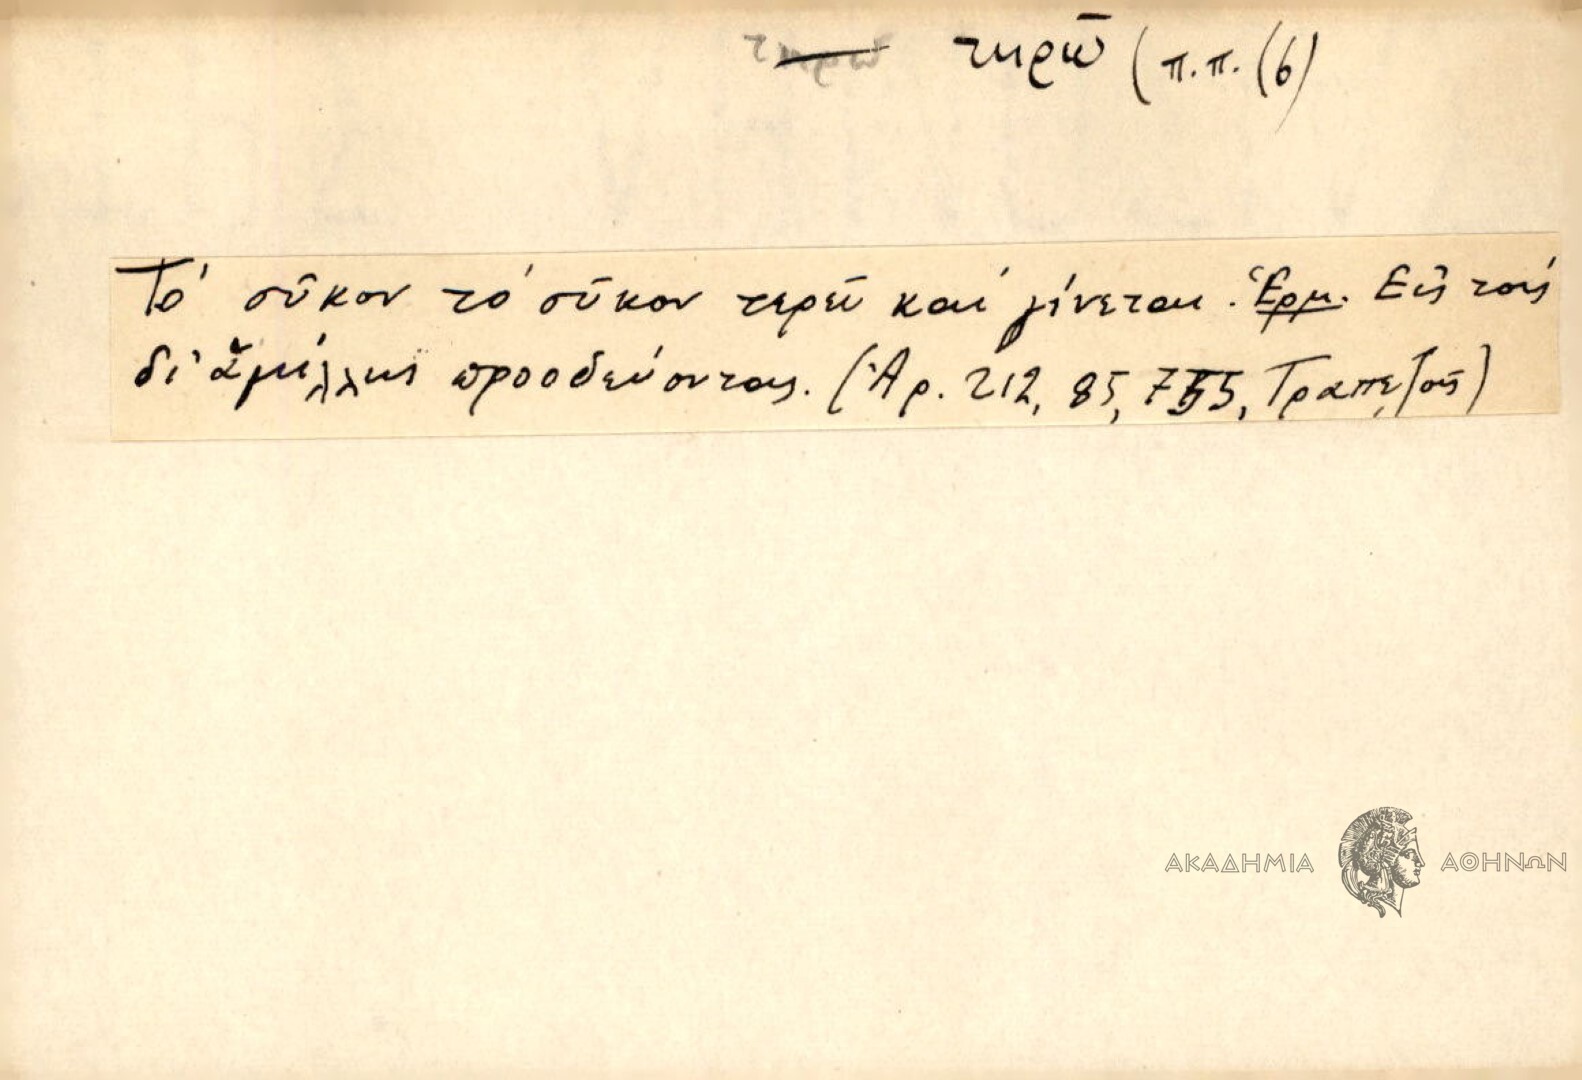 τηρῶ (π.π. (6)
Τό σῦκον τό σῦκον τερεῖ καί γίνεται. Ἑρμ. Εἰς τούς
δι' ἁμίλλης προοδεύοντας. (Ἀρ. 212, 85, 755, Τραπεζοῦς)
ΑΚΑΔΗΜΙΑ ΑΘΗΝΩΝ